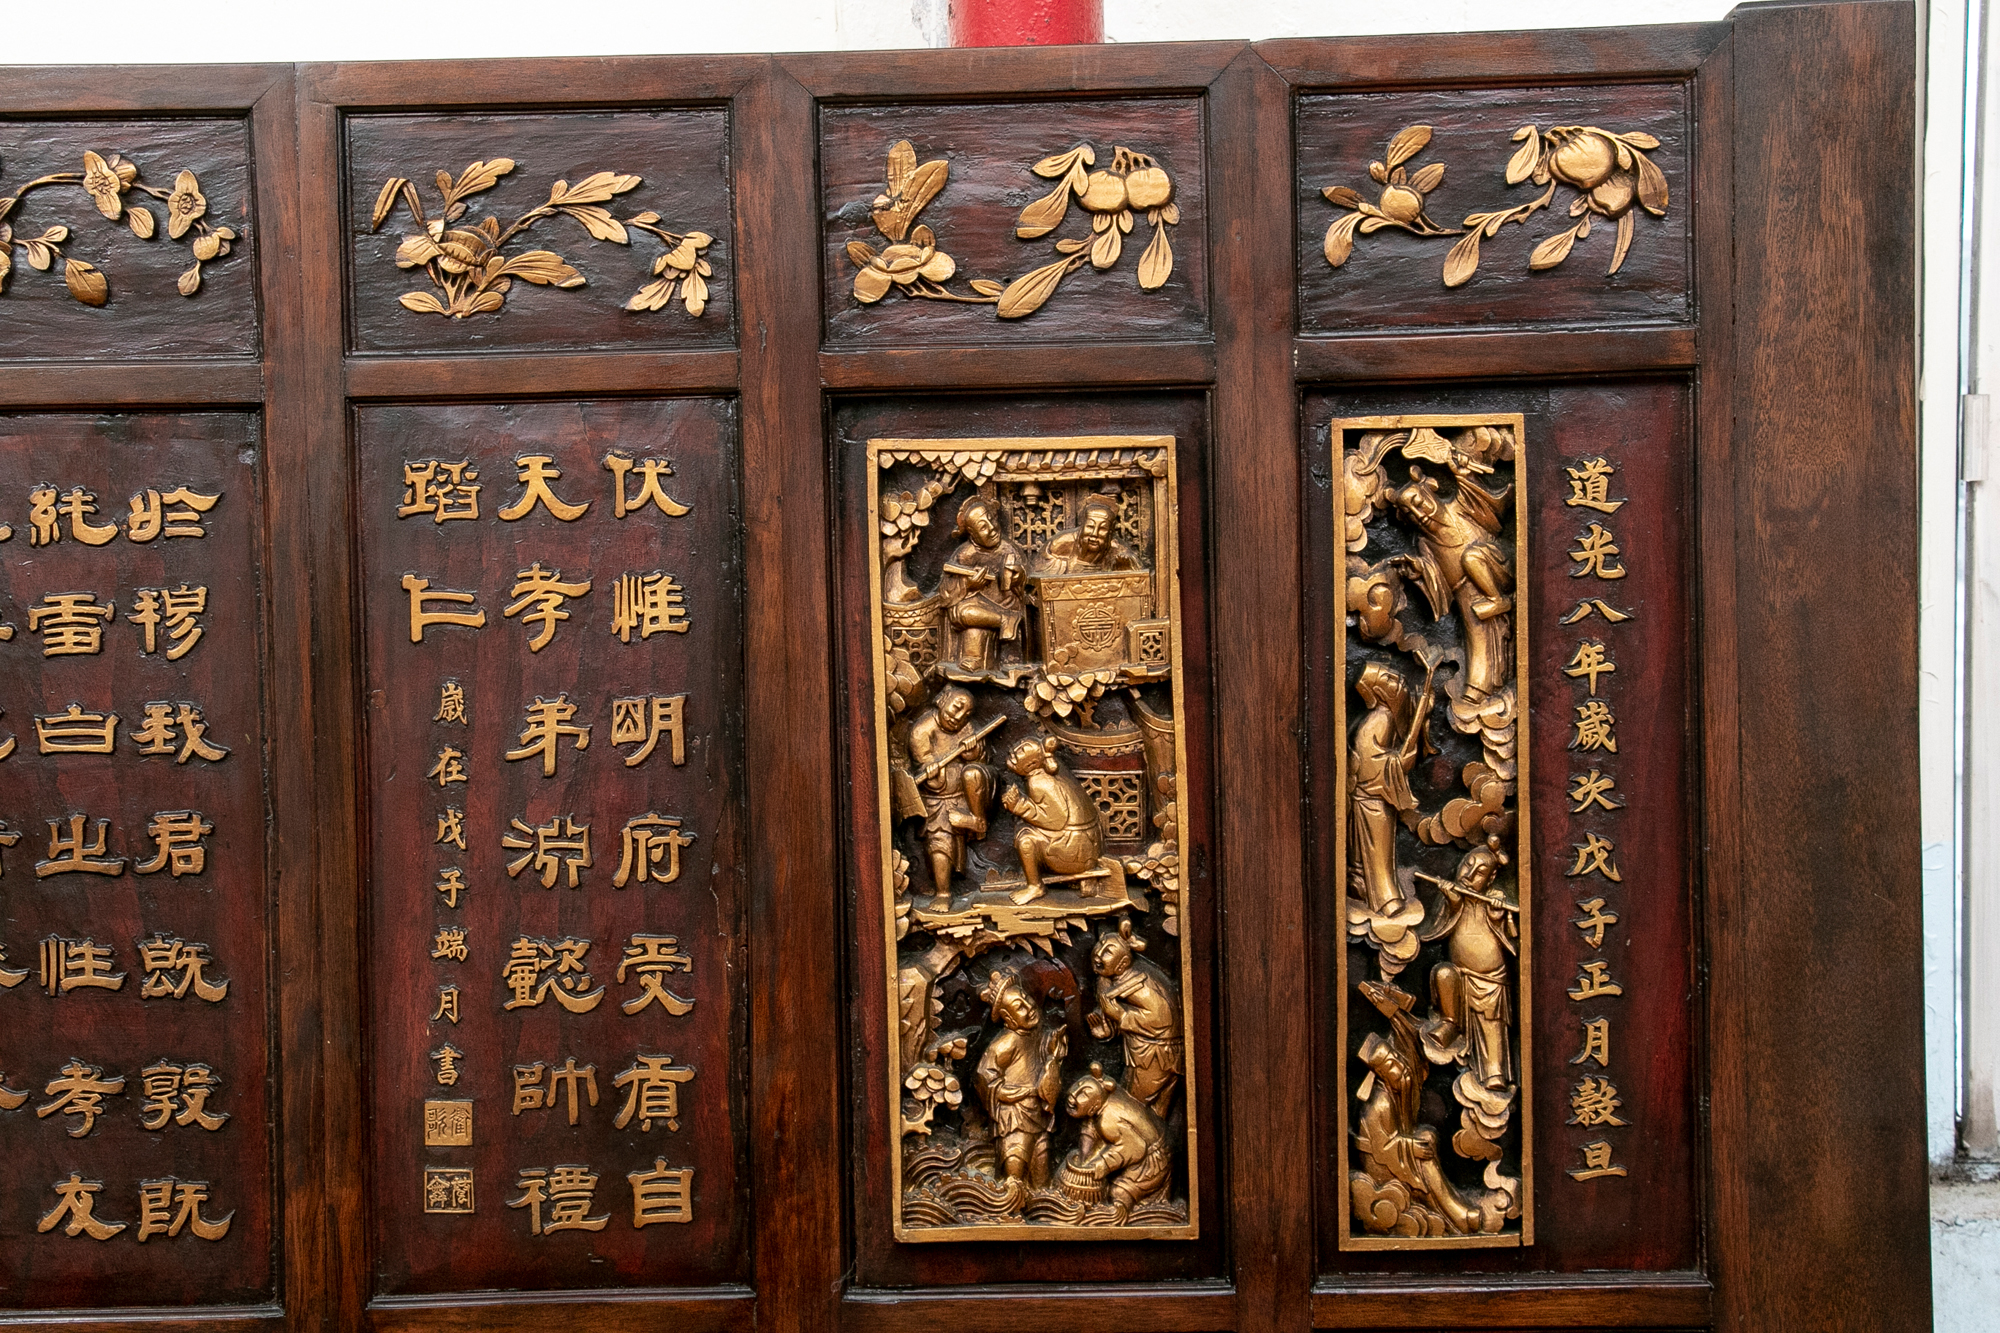 道光八年歲次戊子正月穀旦
伏惟明府受貢自
天孝弟淵懿帥禮
蹈仁
歲在戊子端月書
於穆我君既敦既
純雪白之性孝友